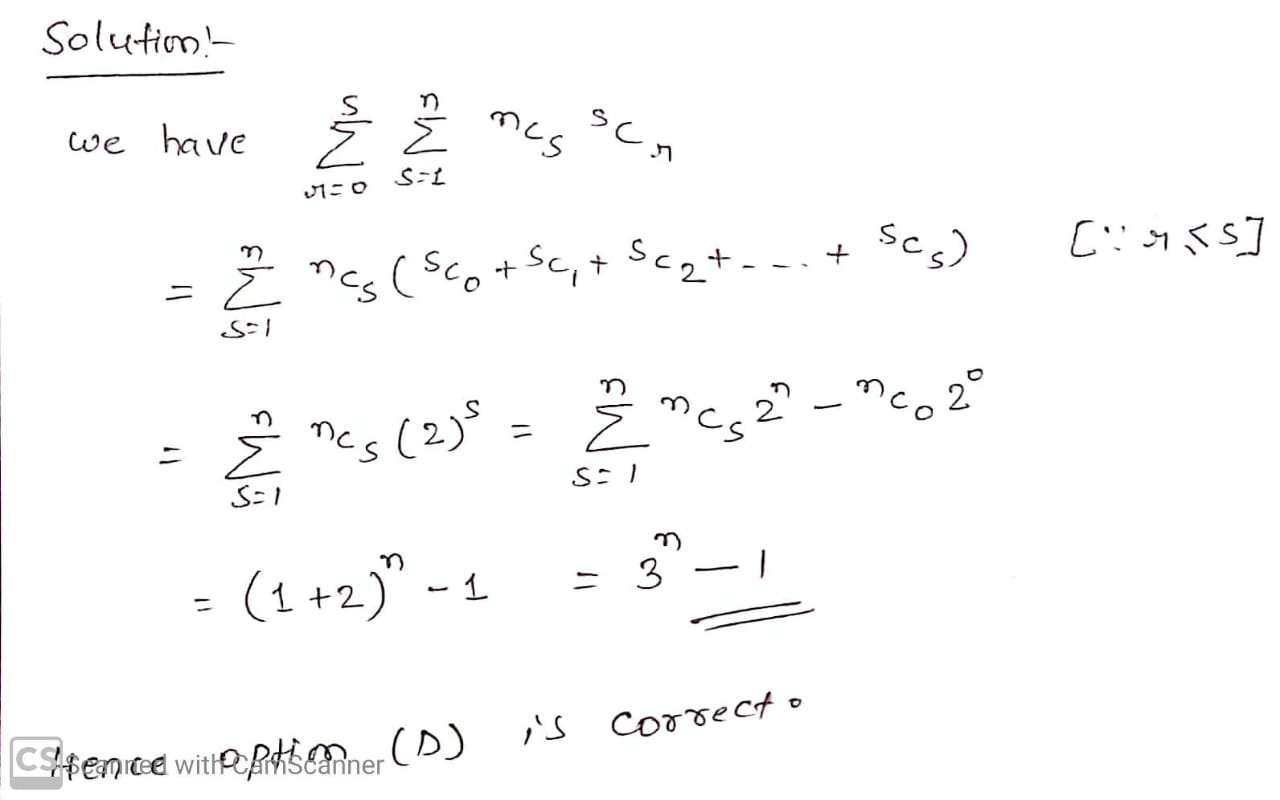 Solution:-
we have \sum_{r=0}^{s} \sum_{s=1}^{n} {}^{n}C_{s} {}^{s}C_{r}
= \sum_{s=1}^{n} {}^{n}C_{s} ( {}^{s}C_{0} + {}^{s}C_{1} + {}^{s}C_{2} + - - . + {}^{s}C_{s} ) [∵ r ≤ s]
= \sum_{s=1}^{n} {}^{n}C_{s} (2)^{s} = \sum_{s=1}^{n} {}^{n}C_{s} 2^{n} - {}^{n}C_{0} 2^{0}
= (1+2)^{n} - 1 = 3^{n} - 1
Hence option (D) is correct.
CS Scanned with CamScanner